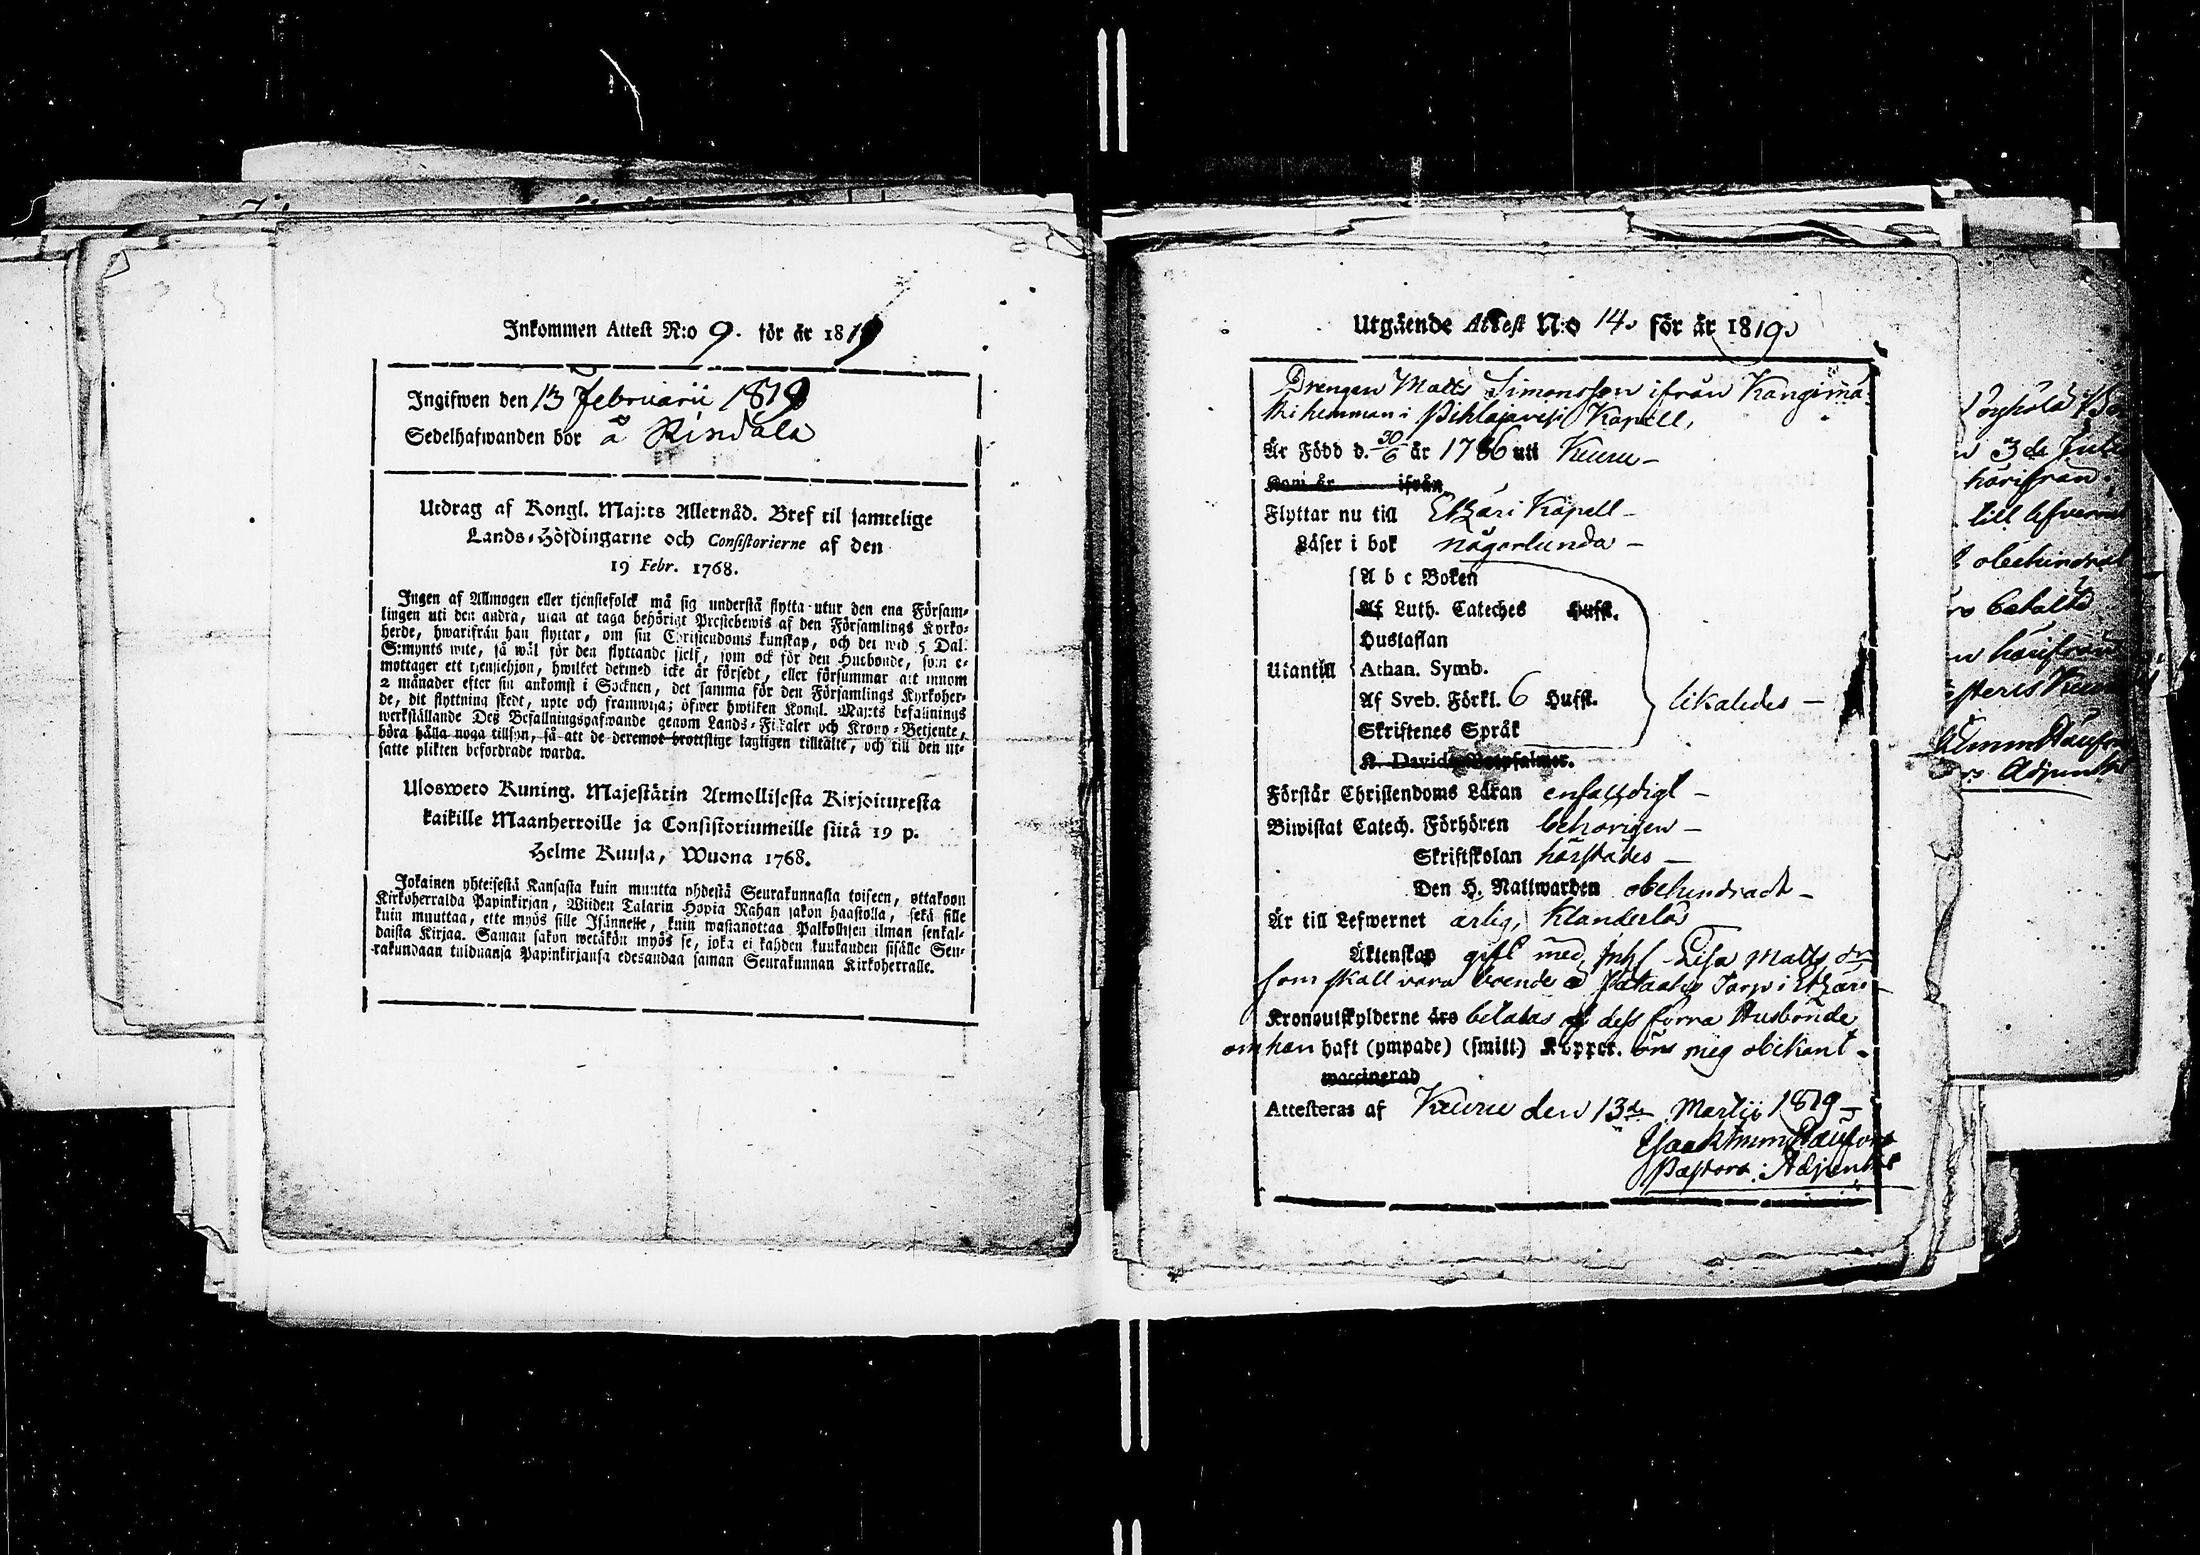 Inkommen Attest N:o 9. för år 1819
Ingifwen den 13 Februarii 1819
Sedelhafwanden bor å Rindala
Utdrag af Kongl. Maj:ts Allernåd. Bref til samtelige
Lands-Höfdingarne och Consistorierne af den
19 Febr. 1768.
Ingen af Allmogen eller tjenstefolck må sig understå flytta utur den ena Försam-
lingen uti den andra, utan at taga behörigt Prestebewis af den Församlings Kyrko-
herde, hwarifrån han flyttar, om sin Christendoms kunskap, och det wid 5 Dal.
S:mynts wite, så wäl för den flyttande sielf, som ock för den Husbonde, som e-
mottager ett tjenstehjon, hwilket dermed icke är försedt, eller försummar att innom
2 månader efter sin ankomst i Socknen, det samma för den Församlings Kyrkoher-
de, dit flyttning skedt, upte och framwisa; öfwer hwilken Kongl. Maj:ts befallnings
werkställande Deß Befallningshafwande genom Lands-Fiskaler och Krono-Betjente,
böra hålla noga tillsyn, så att de deremot brottslige lagligen tilltalte, och till den ut-
satte plikten befordrade warda.
Ulosweto Kuning. Majestätin Armollisesta Kirjoituxesta
kaikille Maanherroille ja Consistoriumeille siitä 19 p.
Helme Kuusa, Wuona 1768.
Jokainen yhteisestä Kansasta kuin muutta yhdestä Seurakunnasta toiseen, ottakoon
Kirkoherralda Papinkirjan, Wiiden Talarin Hopia Rahan sakon haastolla, sekä sille
kuin muuttaa, ette myös sille Isännelle, kuin wastanottaa Palkollisen ilman senkal-
daista Kirjaa. Saman sakon wetäkön myös se, joka ei kahden kuukauden sisälle Seu-
rakundaan tulduansa Papinkirjansa edesandaa saman Seurakunnan Kirkoherralle.
Utgående Attest N:o 14. för år 1819.
Drengen Matts Simonsson ifrån Kangimä
ki hemman i Pihlajavesi Kapell,
Är Född d. 30/6 år 1786 uti Keuru -
Kom år ifrån
Flyttar nu till Etzäri Kapell -
Läser i bok någorlunda -
A b c Boken
Af Luth. Cateches Hufst.
Hustaflan
Utantill Athan. Symb.
Af Sveb. Förkl. 6 Hufst. likaledes -
Skriftenes Språk
K. Davids Botpsalmer.
Förstår Christendoms Läran enfalldigt -
Biwistat Catech. Förhören behörigen -
Skriftskolan härstädes -
Den H. Nattwarden obehindradt -
Är till Lefwernet ärlig, Klanderlös
Äktenskap gift med Lisa Matts dr
som skall vara boende å Torp i Etzäri -
Kronoutskylderne äro betalas af dess förra Husbonde
om han haft (ympade) (smitt) Koppor. äro mig obekant -
waccinerad
Attesteras af Keuru den 13de Martii 1819 -
Pastors Adjunkt
3de Juli
härifrån
till lefvern
obehindrat
betalte
härifrån
Keuru
Adjunkt